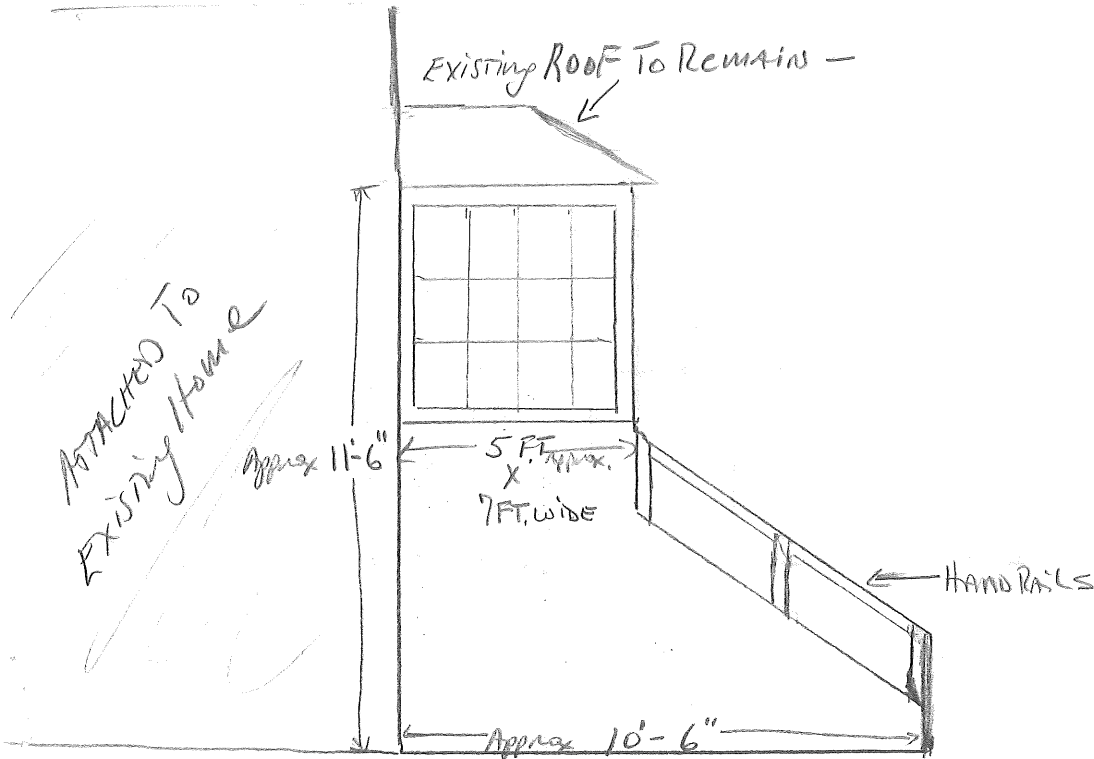 Existing ROOF To Remain —
ATTACHED To
Existing Home
Approx 11'-6"
5 FT Approx.
X
7 FT. WIDE
HAND RAILS
Approx 10'-6"